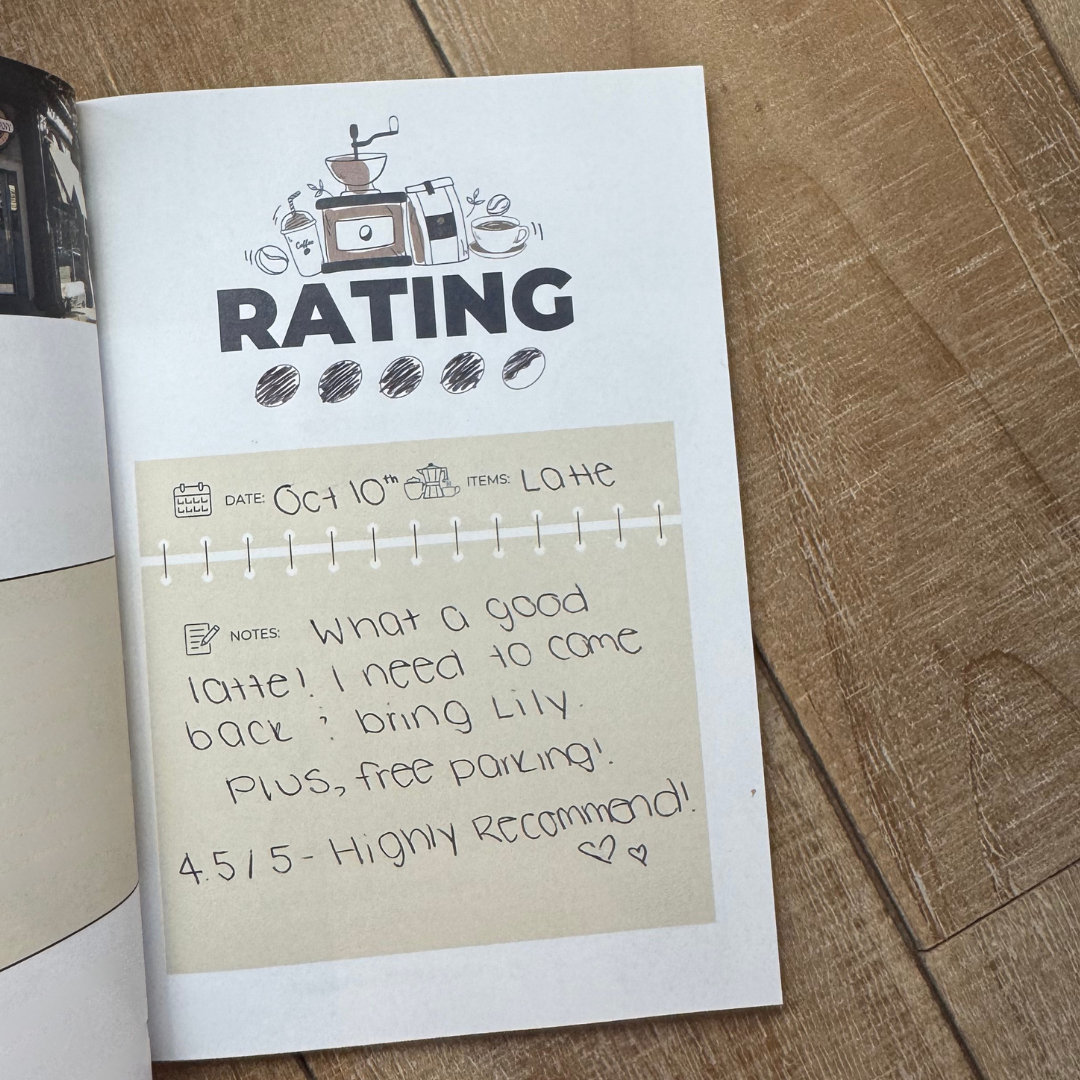 Coffee
RATING
DATE: Oct 10th ITEMS: Latte
NOTES: What a good
latte! I need to come
back & bring Lily.
Plus, free parking!
4.5/5 - Highly Recommend!